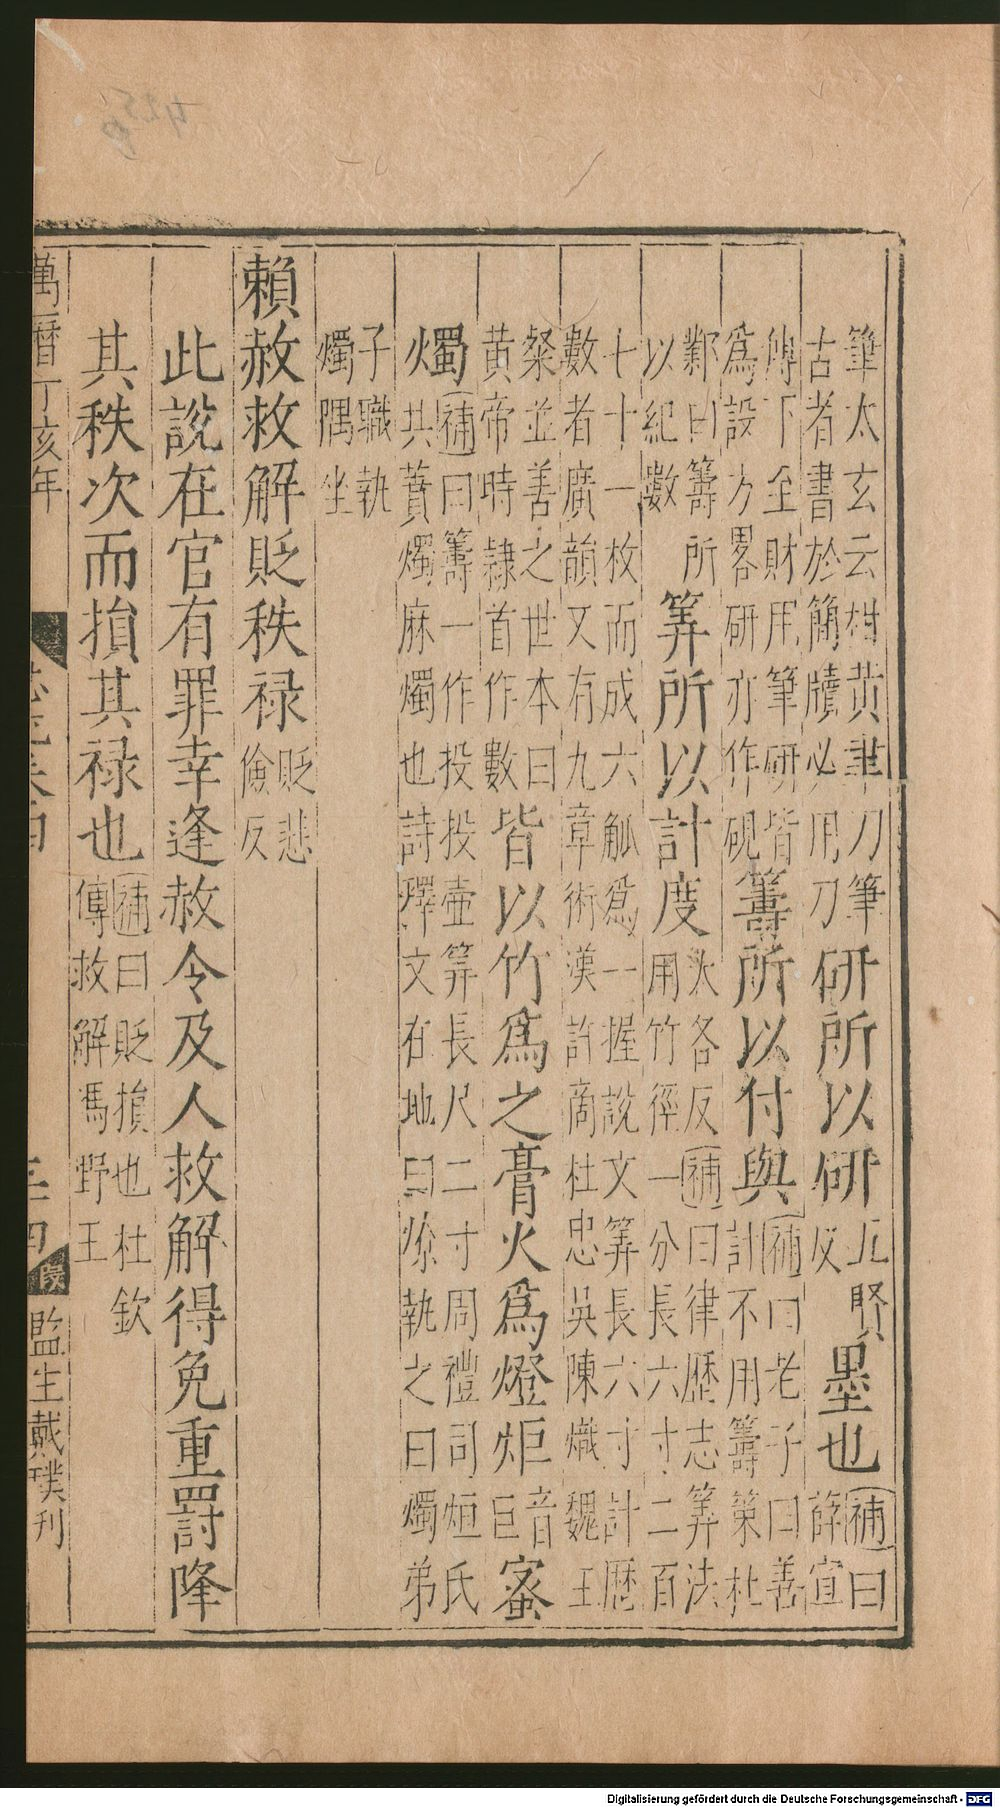 筆太玄云黄聿刀筆古者書於簡牘必用刀研所以研五賢反墨也補曰薛宣
傳下至財用筆研皆爲設方畧研亦作硯籌所以付與補曰老子曰善計不用籌策杜
鄴曰籌所以紀數筭所以計度大各反補曰律歷志筭法用竹徑一分長六寸二百
七十一枚而成六觚爲一握說文筭長六寸計歷數者廣韻又有九章術漢許商杜忠吳陳熾魏王
粲並善之世本曰黄帝時隷首作數皆以竹爲之膏火爲燈炬音巨蜜
燭補曰籌一作投投壷筭長尺二寸周禮司烜氏共蕡燭麻燭也詩釋文在地曰燎執之曰燭弟
子職執燭隅坐
賴赦救解貶秩禄貶悲儉反
此說在官有罪幸逢赦令及人救解得免重罸降
其秩次而損其禄也補曰貶損也杜欽傳救解馮野王
萬曆丁亥年
監生戴璞刊
Digitalisierung gefördert durch die Deutsche Forschungsgemeinschaft - DFG